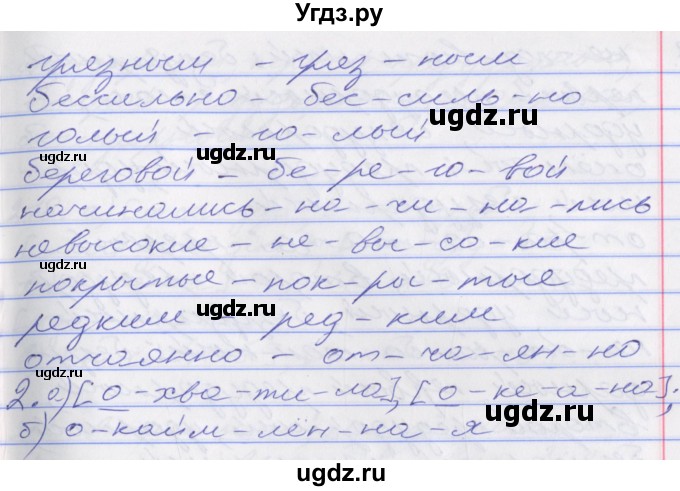 Угдз.ру
грязным - гряз - ным
бессильно - бес-силь-но
голый - го-лый
береговой - бе-ре-го-вой
начинались - на-чи-на-лись
невысокие - не-вы-со-кие
покрытые - пок-ры-тые
редким - ред-ким
отчаянно - от-ча-ян-но
2.а) [о-хва-ти-ла], [о-ке-а-на];
б) о-кайм-лён-на-я
ugdz.ru
ugdz.ru
ugdz.ru
ugdz.ru
ugdz.ru
ugdz.ru
ugdz.ru
ugdz.ru
ugdz.ru